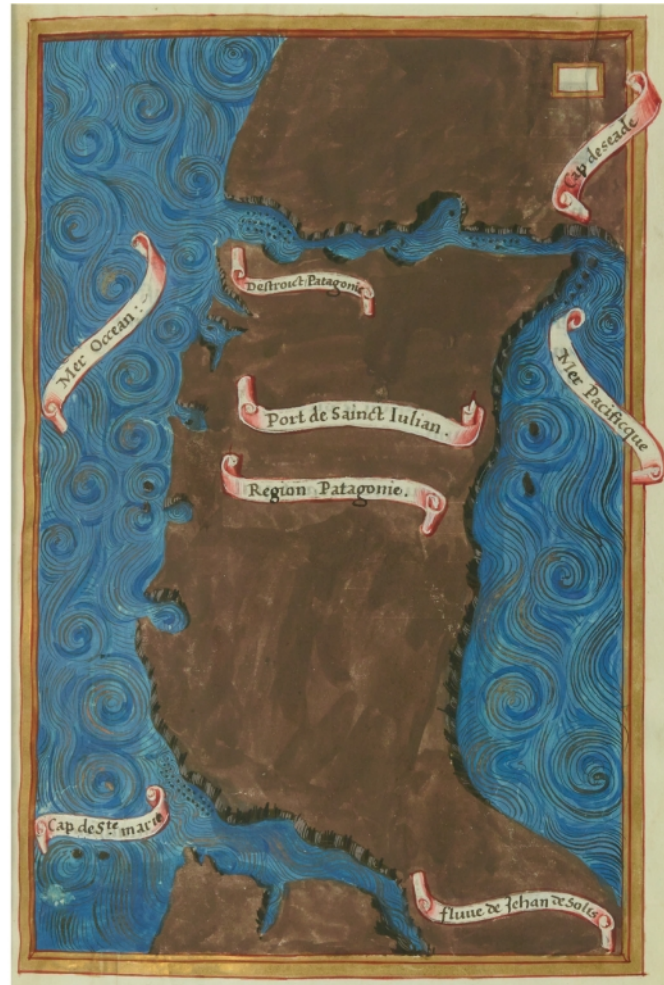 Cap deseade
Mer Ocean :
Destroict Patagonie
Mer Pacificque
Port de Sainct Iulian .
Region Patagonie.
Cap de Ste marie
fluue de Jehan de Solis